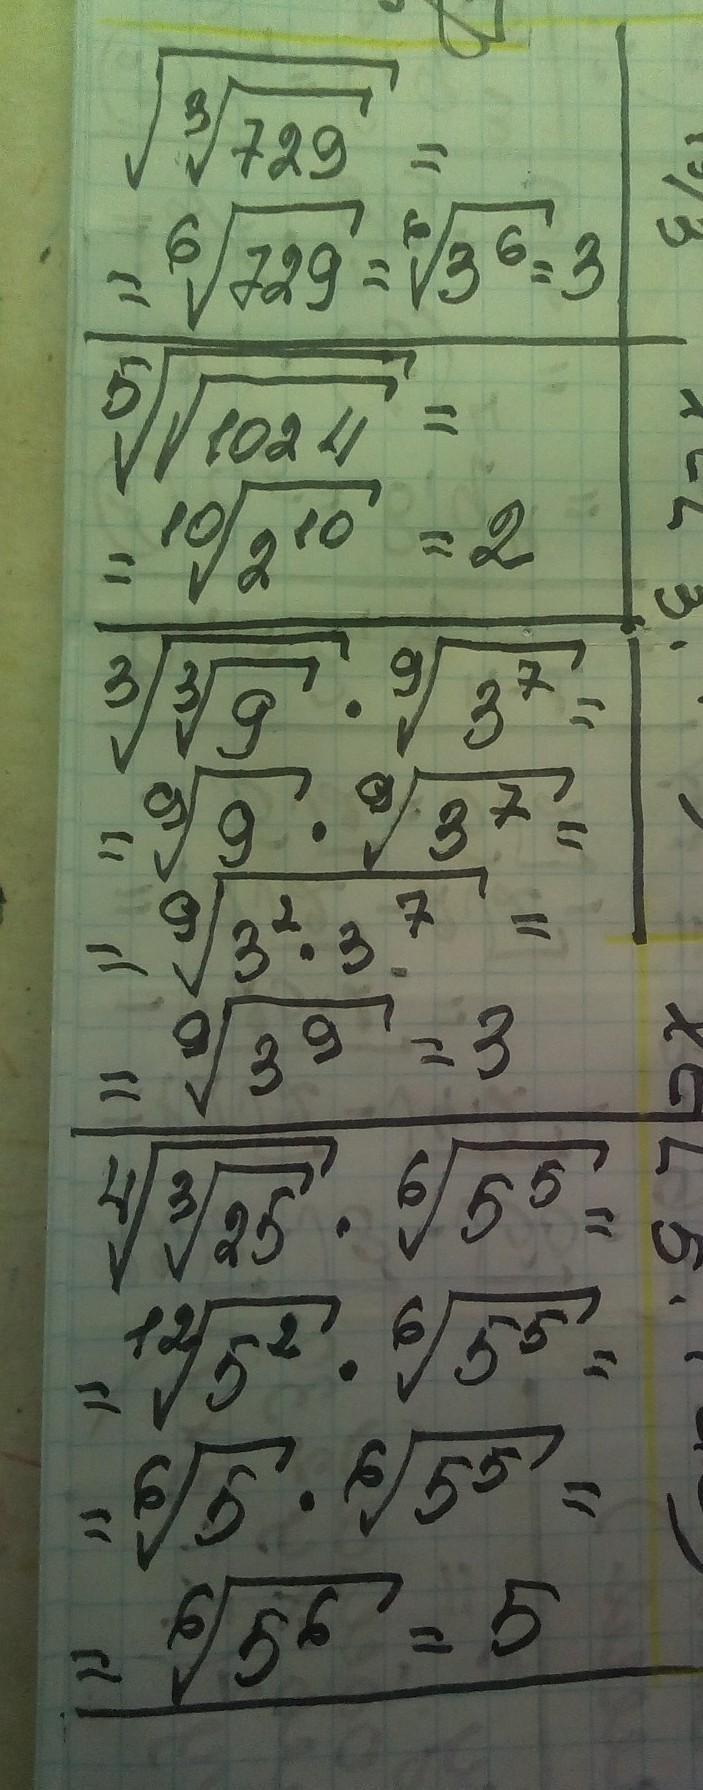 √∛729 =
= ⁶√729 = ⁶√3⁶ = 3
⁵√√1024 =
= ¹⁰√2¹⁰ = 2
∛∛9 · ⁹√3⁷ =
= ⁹√9 · ⁹√3⁷ =
= ⁹√3² · 3⁷ =
= ⁹√3⁹ = 3
⁴√∛25 · ⁶√5⁵ =
= ¹²√5² · ⁶√5⁵ =
= ⁶√5 · ⁶√5⁵ =
= ⁶√5⁶ = 5